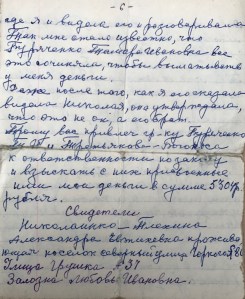 - 6 -
где я и видела его и разговаривала
Так мне стало известно, что
Гурученко Тамара Ивановна все
это сочинила, чтобы выманывать
у меня деньги.
Даже после того, как я ей сказала
видела Николая, она утверждала,
что это не он, а его брат.
Прошу вас привлечь гр-ку
и Третьякова
к ответственности по закону
и взыскать с них присвоенные
ими мои деньги в сумме
рублей.
Свидетели
Николаенко
Александра Евтихевна прожива
ющая поселок северный улица
улица Грушка № 37
Залозна Любовь Ивановна.